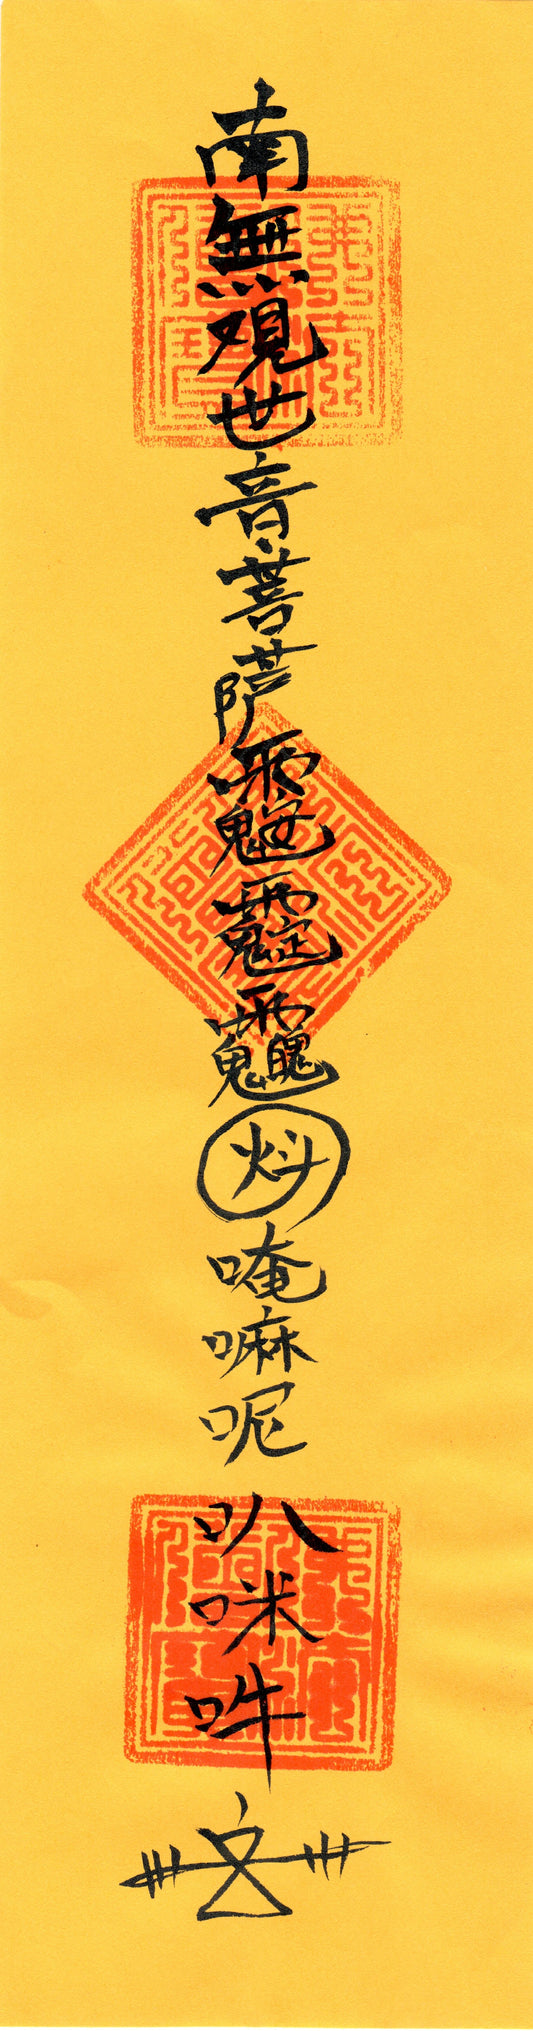 南無覌世音菩薩炓唵嘛呢叭咪吽